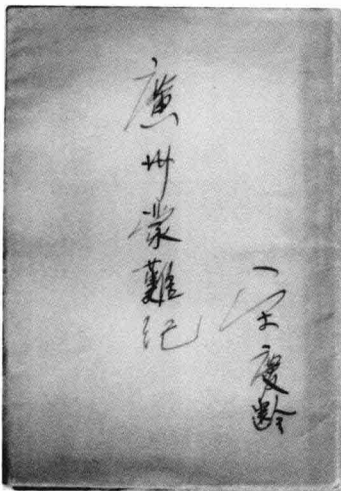 廣州蒙難紀
宋慶齡